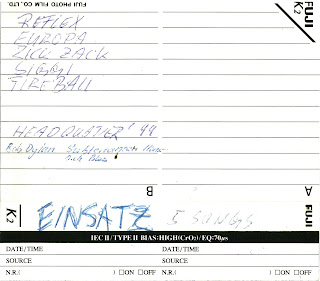 FUJI PHOTO FILM CO., LTD.
FUJI
K2
REFLEX
EUROPA
ZICK ZACK
SIGGI
FIREBALL
HEADQUATIER' 99
B
A
K2
EINSATZ
5 SONGS
FUJI
IEC II/TYPE II BIAS:HIGH(CrO2)/EQ:70µs
DATE/TIME
DATE/TIME
SOURCE
SOURCE
N.R.( ) □ON □OFF
N.R.( ) □ON □OFF